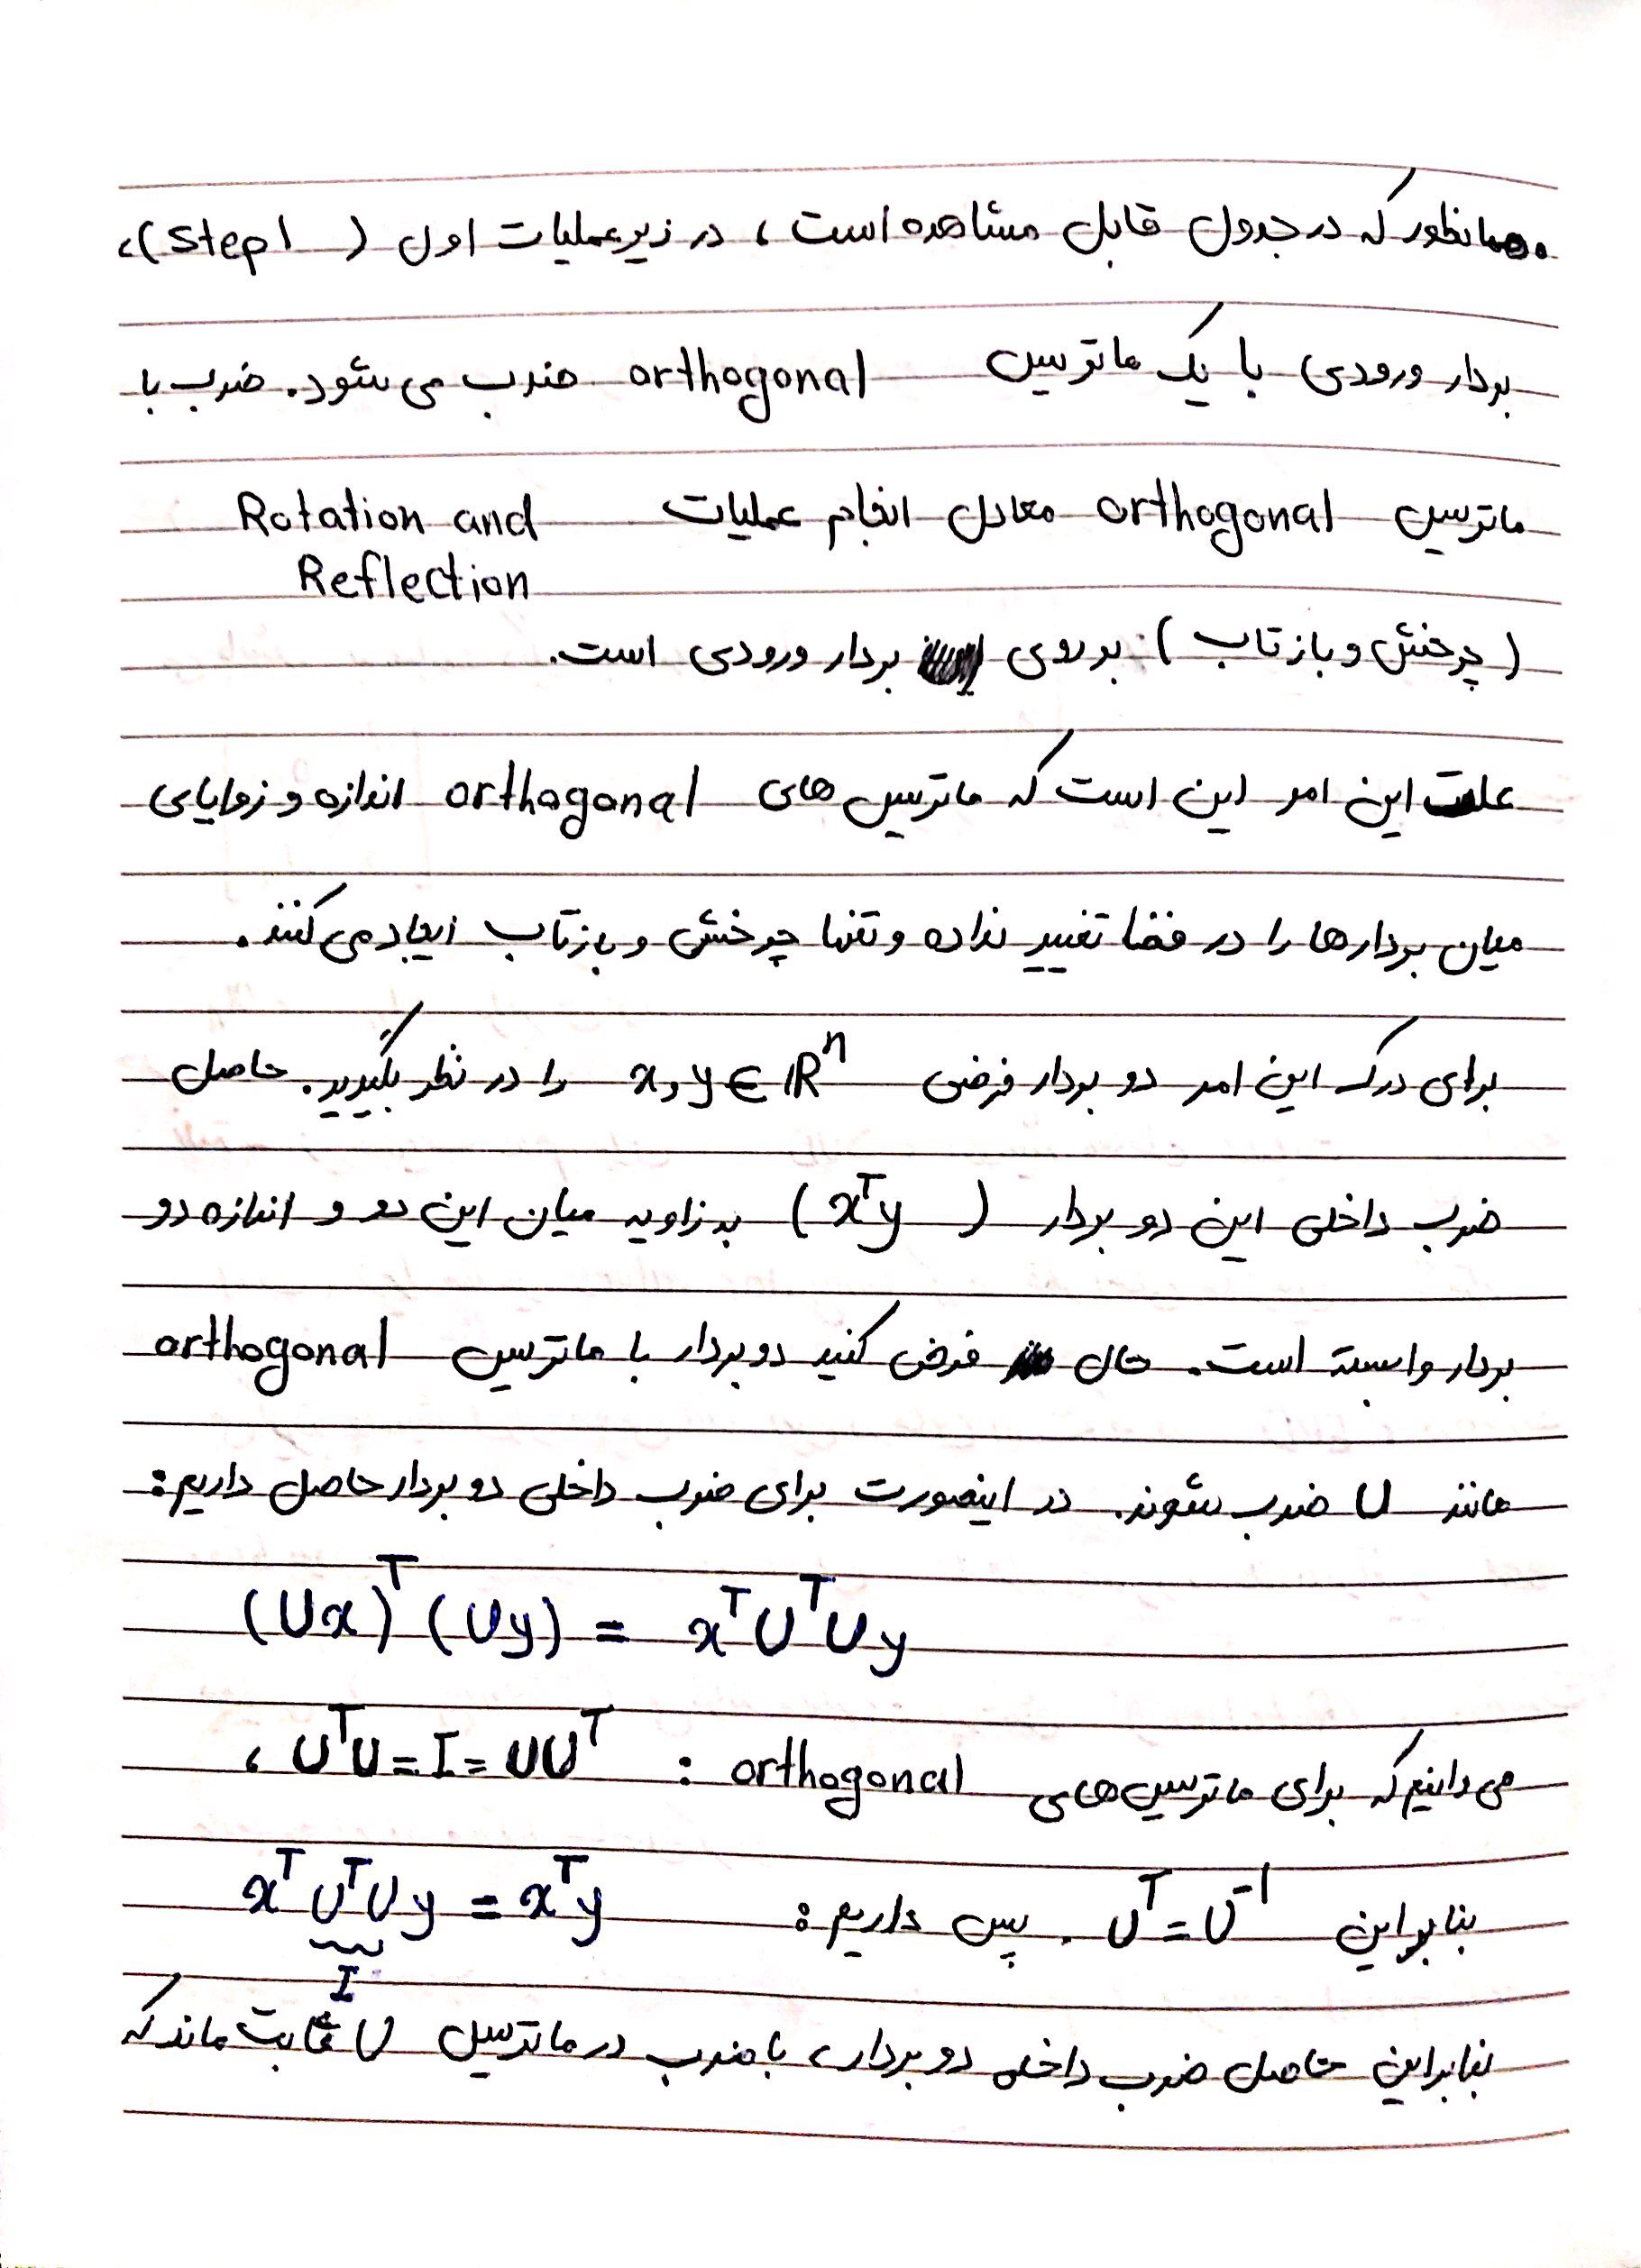 همانطور که در جدول قابل مشاهده است ، در زیر عملیات اول ( step 1 )،
بردار ورودی با یک ماتریس orthogonal ضرب می شود. ضرب با
ماتریس orthogonal معادل انجام عملیات Rotation and
Reflection
( چرخش و بازتاب ) بر روی بردار ورودی است.
علت این امر این است که ماتریس های orthogonal اندازه و زوایای
میان بردارها را در فضا تغییر نداده و تنها چرخش و بازتاب ایجاد می کنند.
برای درک این امر دو بردار فرضی x, y ∈ ℝⁿ را در نظر بگیرید. حاصل
ضرب داخلی این دو بردار ( xᵀy ) به زاویه میان این دو و اندازه دو
بردار وابسته است. حال فرض کنید دو بردار با ماتریس orthogonal
مانند U ضرب شوند. در اینصورت برای ضرب داخلی دو بردار حاصل داریم:
(Ux)ᵀ (Uy) = xᵀUᵀUy
می دانیم که برای ماتریس های orthogonal : UᵀU = I = UUᵀ ،
بنابراین Uᵀ = U⁻¹ . پس داریم: xᵀUᵀUy = xᵀy
I
بنابراین حاصل ضرب داخلی دو بردار، با ضرب در ماتریس U ثابت ماند که